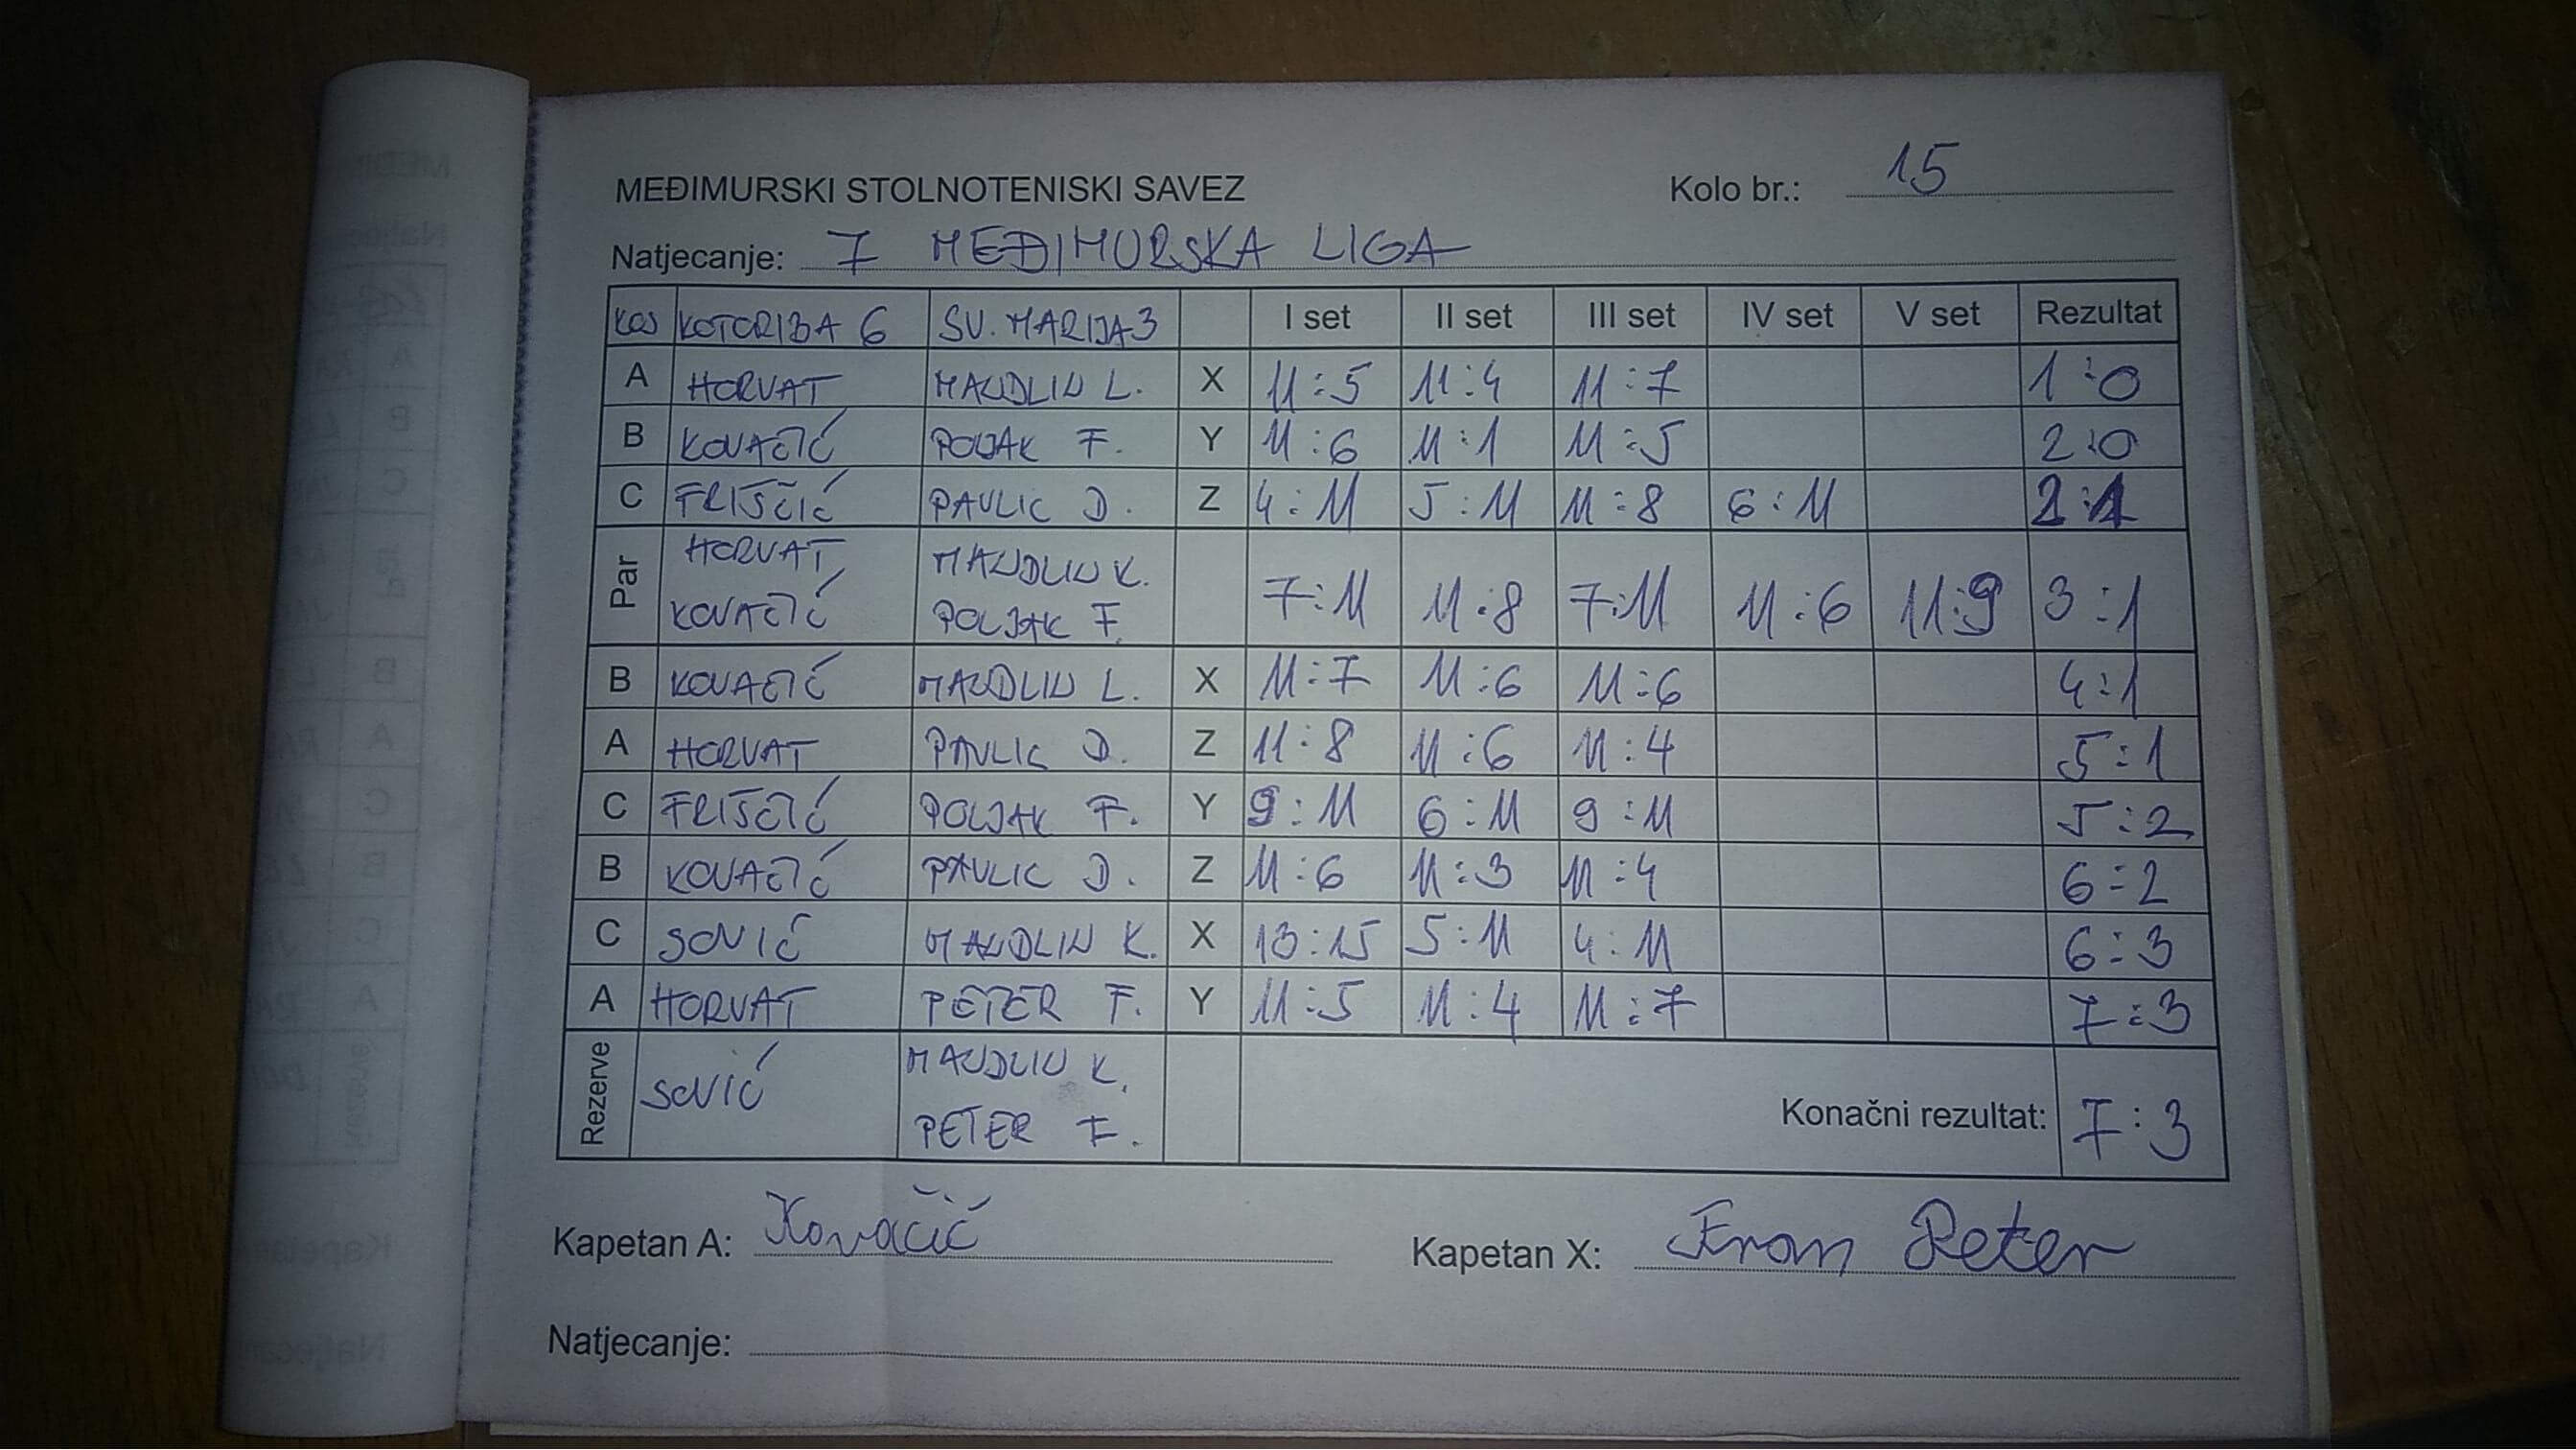 MEĐIMURSKI STOLNOTENISKI SAVEZ Kolo br.: 15
Natjecanje: 7 MEĐIMURSKA LIGA
KOTORIBA 6 SV. MARIJA 3 I set II set III set IV set V set Rezultat
A HORVAT MAUDLIN L. X 11:5 11:4 11:7 1:0
B KOVAČIĆ POLJAK F. Y 11:6 11:1 11:5 2:0
C FRIŠČIĆ PAVLIC D. Z 4:11 5:11 11:8 6:11 2:1
Par HORVAT, KOVAČIĆ MAUDLIN K. POLJAK F. 7:11 11:8 7:11 11:6 11:9 3:1
B KOVAČIĆ MAUDLIN L. X 11:7 11:6 11:6 4:1
A HORVAT PAVLIC D. Z 11:8 11:6 11:4 5:1
C FRIŠČIĆ POLJAK F. Y 9:11 6:11 9:11 5:2
B KOVAČIĆ PAVLIC D. Z 11:6 11:3 11:4 6:2
C SOVIĆ MAUDLIN K. X 13:15 5:11 4:11 6:3
A HORVAT PETER F. Y 11:5 11:4 11:7 7:3
Rezerve SOVIĆ MAUDLIN K. PETER F. Konačni rezultat: 7:3
Kapetan A: Kovačić Kapetan X: Fran Peter
Natjecanje: